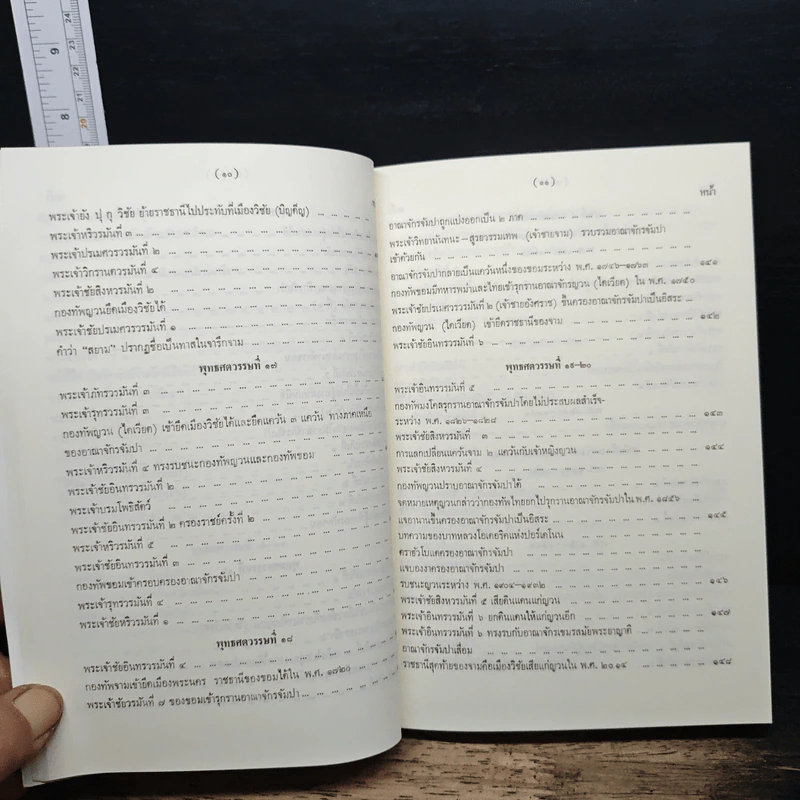 (๑๐)
พระเจ้ายัง ปุ กุ วิชัย ย้ายราชธานีไปประทับที่เมืองวิชัย (บิญดิญ) ... ... ... ...
พระเจ้าหริวรมันที่ ๓ ... ... ... ...
พระเจ้าปรเมศวรวรมันที่ ๒ ... ... ... ...
พระเจ้าวิกรานตวรมันที่ ๔ ... ... ... ...
พระเจ้าชัยสิงหวรมันที่ ๒ ... ... ... ...
กองทัพญวนยึดเมืองวิชัยได้ ... ... ... ...
พระเจ้าชัยปรเมศวรวรมันที่ ๑ ... ... ... ...
คำว่า "สยาม" ปรากฏชื่อเป็นทาสในจารึกจาม ... ... ... ...
พุทธศตวรรษที่ ๑๗
พระเจ้าภัทรวรมันที่ ๓ ... ... ... ...
พระเจ้ารุทรวรมันที่ ๓ ... ... ... ...
กองทัพญวน (ไดเวียด) เข้ายึดเมืองวิชัยได้และยึดแคว้น ๓ แคว้น ทางภาคเหนือ
ของอาณาจักรจัมปา ... ... ... ...
พระเจ้าหริวรมันที่ ๔ ทรงรบชนะกองทัพญวนและกองทัพขอม ... ... ... ...
พระเจ้าชัยอินทรวรมันที่ ๒ ... ... ... ...
พระเจ้าบรมโพธิสัตว์ ... ... ... ...
พระเจ้าชัยอินทรวรมันที่ ๒ ครองราชย์ครั้งที่ ๒ ... ... ... ...
พระเจ้าหริวรมันที่ ๕ ... ... ... ...
พระเจ้าชัยอินทรวรมันที่ ๓ ... ... ... ...
กองทัพขอมเข้าครอบครองอาณาจักรจัมปา ... ... ... ...
พระเจ้ารุทรวรมันที่ ๔ ... ... ... ...
พระเจ้าชัยหริวรมันที่ ๑ ... ... ... ...
พุทธศตวรรษที่ ๑๘
พระเจ้าชัยอินทรวรมันที่ ๔ ... ... ... ...
กองทัพจามเข้ายึดเมืองพระนคร ราชธานีของขอมได้ใน พ.ศ. ๑๗๒๐ ... ... ... ...
พระเจ้าชัยวรมันที่ ๗ ของขอมเข้ารุกรานอาณาจักรจัมปา ... ... ... ...
(๑๑)
หน้า
อาณาจักรจัมปาถูกแบ่งออกเป็น ๒ ภาค ... ... ... ...
พระเจ้าวิทยานันทนะ–สูรยวรรมเทพ (เจ้าชายจาม) รวบรวมอาณาจักรจัมปา
เข้าด้วยกัน ... ... ... ...
อาณาจักรจัมปากลายเป็นแคว้นหนึ่งของขอมระหว่าง พ.ศ. ๑๗๔๖–๑๗๖๓ ... ... ๑๔๑
กองทัพขอมมีทหารพม่าและไทยเข้ารุกรานอาณาจักรญวน (ไดเวียด) ใน พ.ศ. ๑๗๕๐
พระเจ้าชัยปรเมศวรวรมันที่ ๒ (เจ้าชายอังศราช) ขึ้นครองอาณาจักรจัมปาเป็นอิสระ ...
กองทัพญวน (ไดเวียด) เข้ายึดราชธานีของจาม ... ... ... ... ๑๔๒
พระเจ้าชัยอินทรวรมันที่ ๖ ... ... ... ...
พุทธศตวรรษที่ ๑๙–๒๐
พระเจ้าอินทรวรมันที่ ๕ ... ... ... ...
กองทัพมงโคลรุกรานอาณาจักรจัมปาโดยไม่ประสบผลสำเร็จ-
ระหว่าง พ.ศ. ๑๘๒๖–๑๘๒๘ ... ... ... ... ๑๔๓
พระเจ้าชัยสิงหวรมันที่ ๓ ... ... ... ...
การแลกเปลี่ยนแคว้นจาม ๒ แคว้นกับเจ้าหญิงญวน ... ... ... ... ๑๔๔
พระเจ้าชัยสิงหวรมันที่ ๔ ... ... ... ...
กองทัพญวนปราบอาณาจักรจัมปาได้ ... ... ... ...
จดหมายเหตุญวนกล่าวว่ากองทัพไทยยกไปรุกรานอาณาจักรจัมปาใน พ.ศ. ๑๘๕๖ ...
แจอานานขึ้นครองอาณาจักรจัมปาเป็นอิสระ ... ... ... ... ๑๔๕
บทความของบาทหลวงโอเดอริคแห่งปอร์เดโนน ... ... ... ...
ตราฮัวโบแดครองอาณาจักรจัมปา ... ... ... ...
แจบองงาครองอาณาจักรจัมปา ... ... ... ...
รบชนะญวนระหว่าง พ.ศ. ๑๙๐๔–๑๙๓๒ ... ... ... ... ๑๔๖
พระเจ้าชัยสิงหวรมันที่ ๕ เสียดินแดนแก่ญวน ... ... ... ...
พระเจ้าอินทรวรมันที่ ๖ ยกดินแดนให้แก่ญวนอีก ... ... ... ... ๑๔๗
พระเจ้าอินทรวรมันที่ ๖ ทรงรบกับอาณาจักรเขมรสมัยพระยาญาติ ... ... ...
อาณาจักรจัมปาเสื่อม ... ... ... ...
ราชธานีสุดท้ายของจามคือเมืองวิชัยเสียแก่ญวนใน พ.ศ. ๒๐๑๔ ... ... ... ๑๔๘